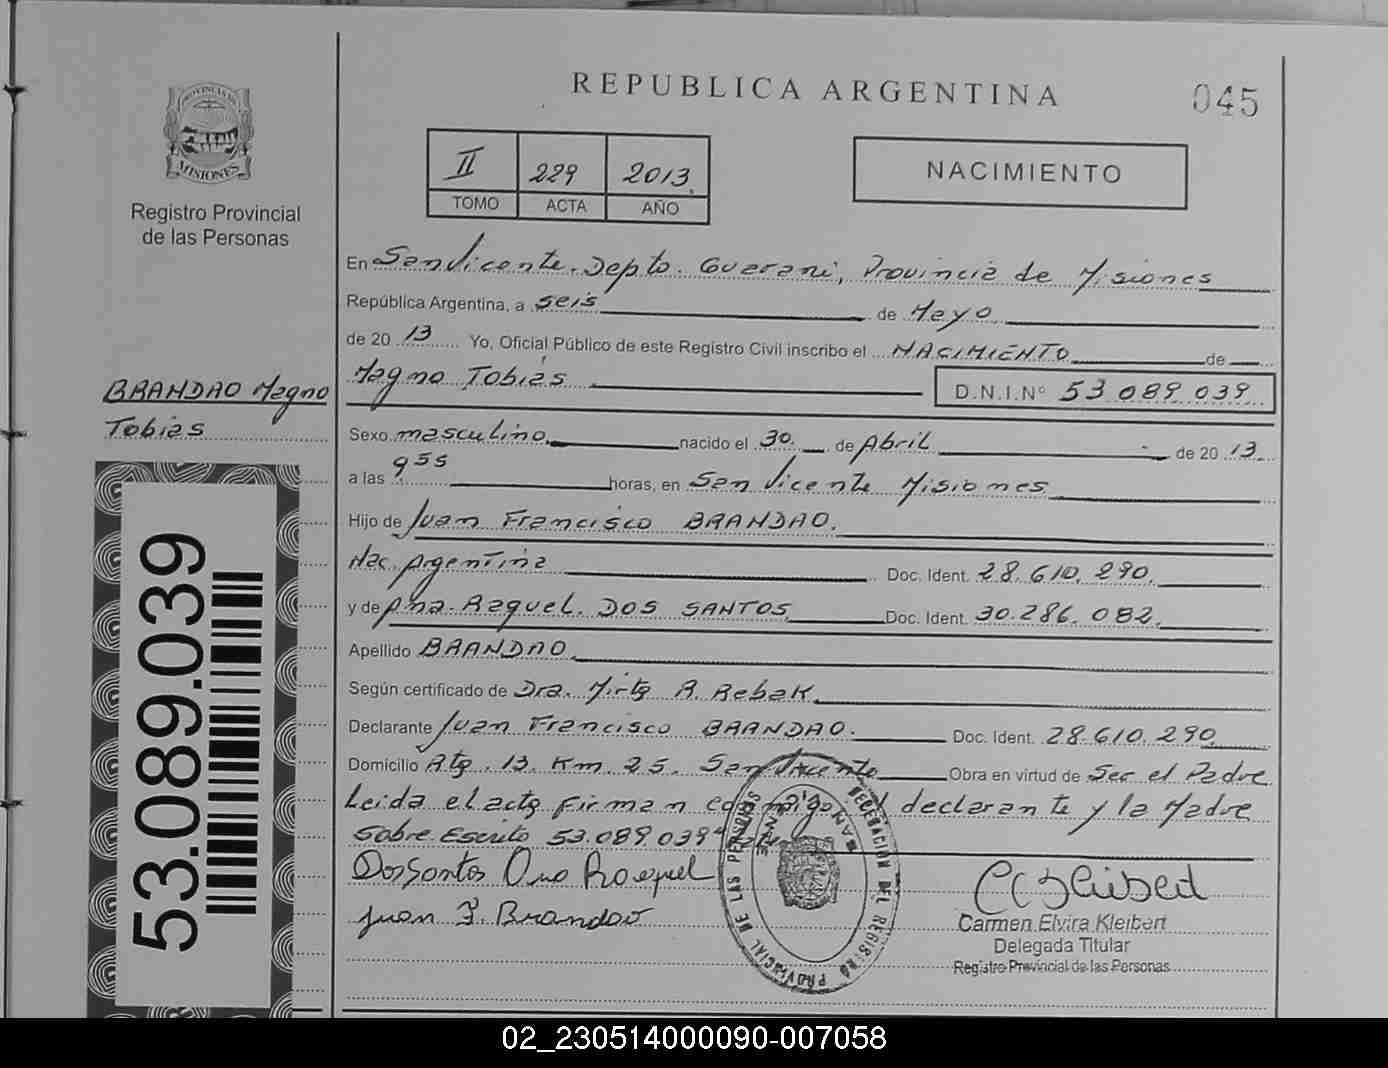 REPUBLICA ARGENTINA
045
PROVINCIA DE
MISIONES
Registro Provincial
de las Personas
II 229 2013
TOMO ACTA AÑO
NACIMIENTO
En San Vicente. Depto. Guarani, Provincia de Misiones
República Argentina, a seis de Mayo
de 2013 Yo, Oficial Público de este Registro Civil inscribo el NACIMIENTO de
Magno Tobias D.N.I.Nº 53 089 039
BRANDAO Magno
Tobias
Sexo masculino nacido el 30 de Abril de 2013
a las 9 55 horas, en San Vicente Misiones
Hijo de Juan Francisco BRANDAO.
Nac. Argentina Doc. Ident. 28.610.290.
y de Ana Raquel DOS SANTOS Doc. Ident. 30.286.082.
Apellido BRANDAO
Según certificado de Dra. Mirta R. Rebak
Declarante Juan Francisco BRANDAO. Doc. Ident. 28.610.290
Domicilio Rta. 13. Km. 25. San Vicente Obra en virtud de Ser el Padre
Leida el acta firman conmigo el declarante y la Madre
Sobre Escrito 53.089.039
Dos Santos Ana Raquel
Juan F. Brandao
Carmen Elvira Kleibert
Delegada Titular
Registro Provincial de las Personas
DELEGACION DEL REGISTRO PROVINCIAL DE LAS PERSONAS
SAN VICENTE
53.089.039
02_230514000090-007058